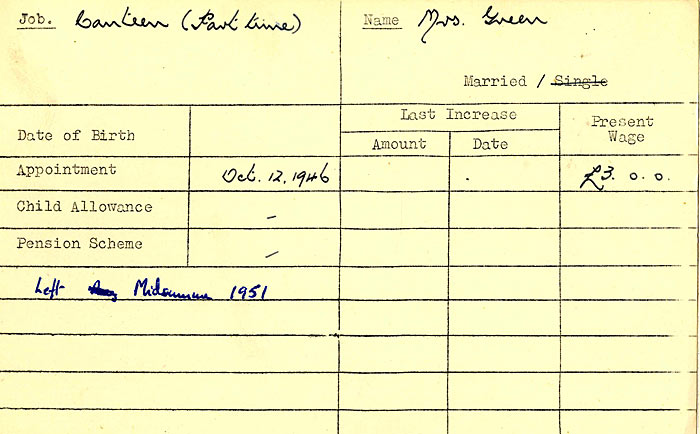 Job. Canteen (Part time) Name Mrs. Green
Married / Single
Last Increase Present Wage
Date of Birth Amount Date
Appointment Oct. 12, 1946 £3. 0. 0.
Child Allowance –
Pension Scheme –
Left Midsummer 1951